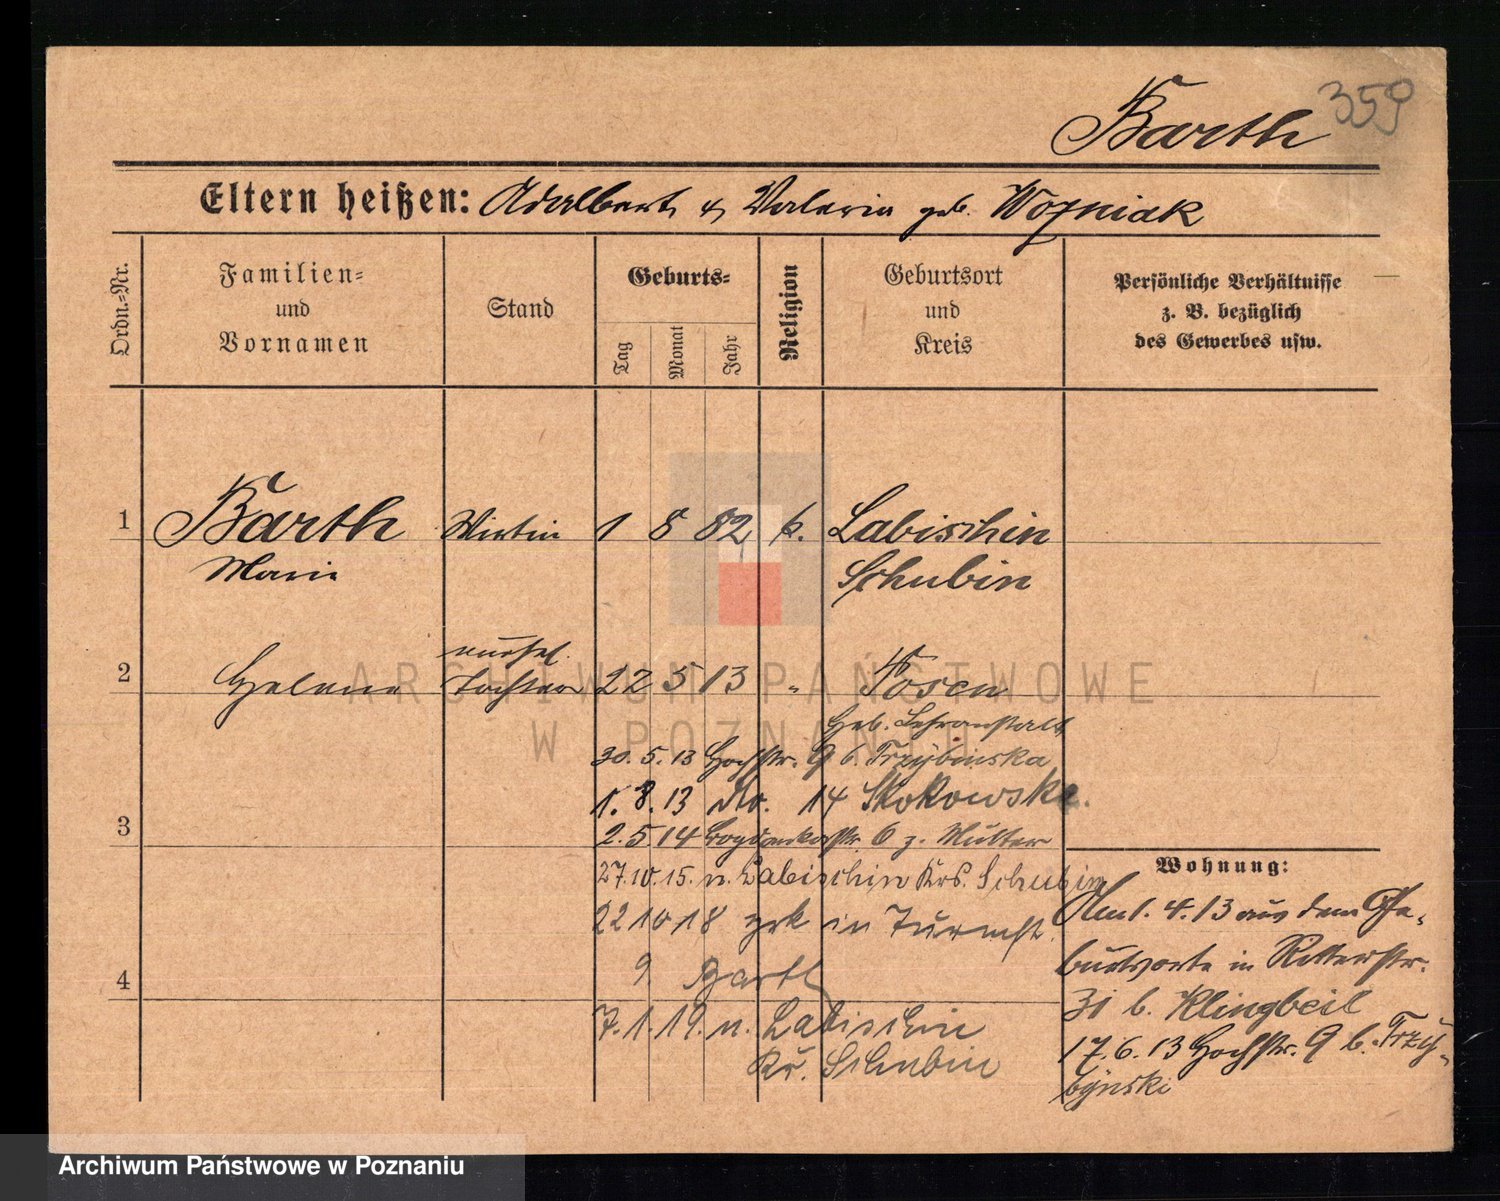 359
Barth
Eltern heißen: Adalbert & Valeria geb. Wozniak
Ordn.-Nr.
Familien-
und
Vornamen
Stand
Geburts-
Tag
Monat
Jahr
Religion
Geburtsort
und
Kreis
Persönliche Verhältnisse
z. B. bezüglich
des Gewerbes usw.
1 Barth Wirtin 1 8 82 k. Labischin
Marie Schubin
unehel.
2 Helene Tochter 22 5 13 " Posen
Heb. Lehranstalt
30. 5. 13 Hochstr. 9 b. Trzybinska
1. 8. 13 do. 14 Skokowska.
3
2. 5. 14 Bogdankastr. 6 z. Mutter
27.10.15. n. Labischin Krs. Schubin
22 10 18 zrk in Turmstr.
9 Bartl
4
7. 1. 19. n. Labischin
Kr. Schubin
Wohnung:
Am 1. 4. 13 aus dem Ge-
burtsorte in Ritterstr.
31 b. Klingbeil
17. 6. 13 Hochstr. 9 b. Trzy-
bynski
ARCHIWUM PAŃSTWOWE
W POZNANIU
Archiwum Państwowe w Poznaniu